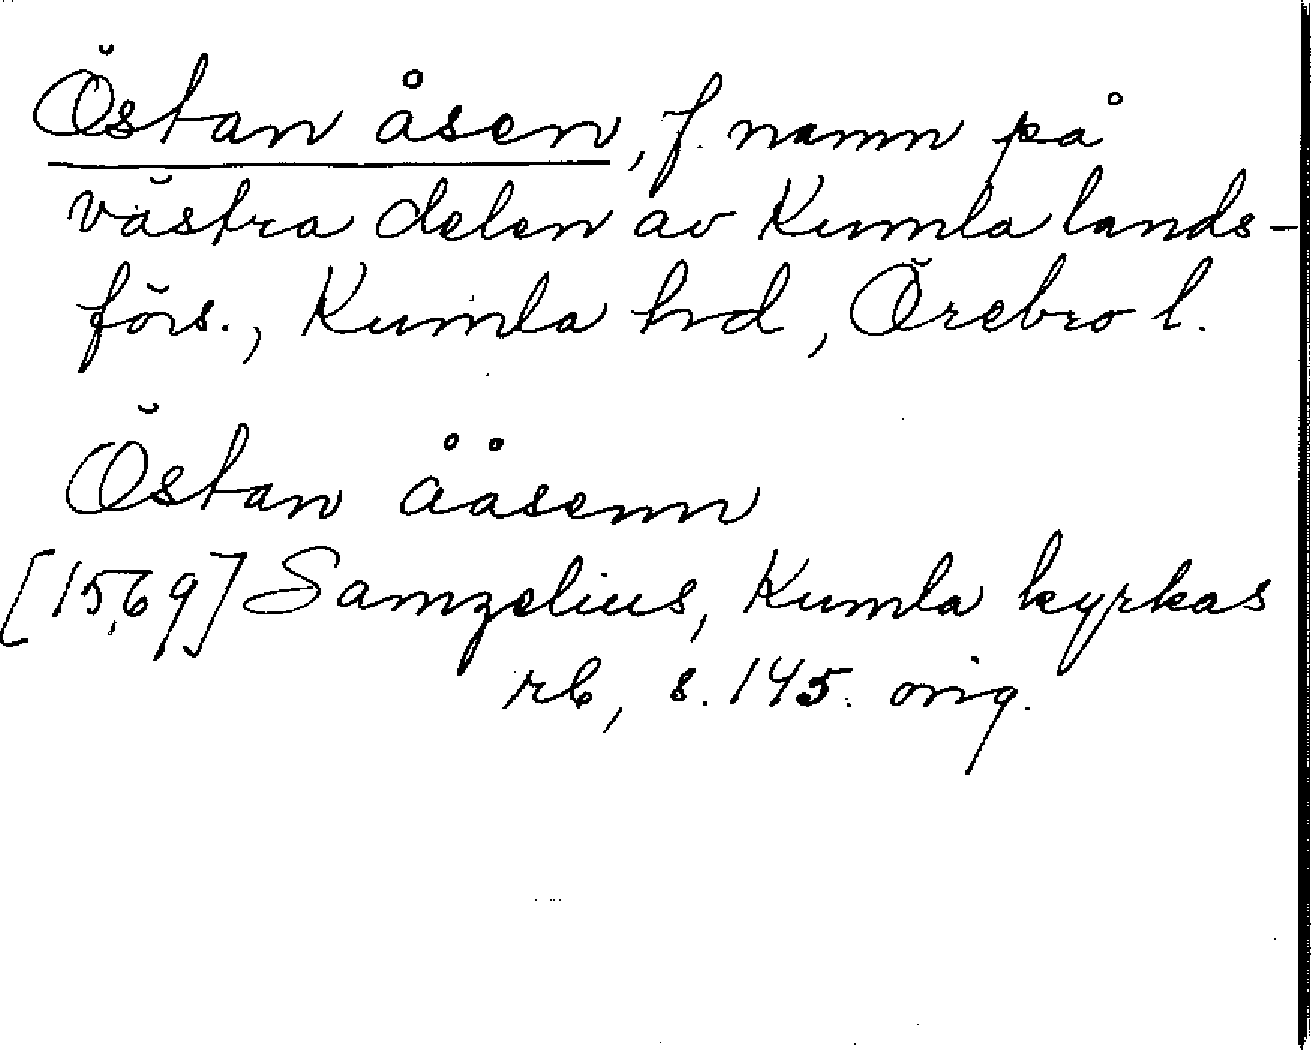 Östan åsen, f. namn på
västra delen av Kumla lands-
förs., Kumla hd, Örebro l.
Östan ååsenn
[1569] Samzelius, Kumla kyrkas
rb, s. 145. orig.